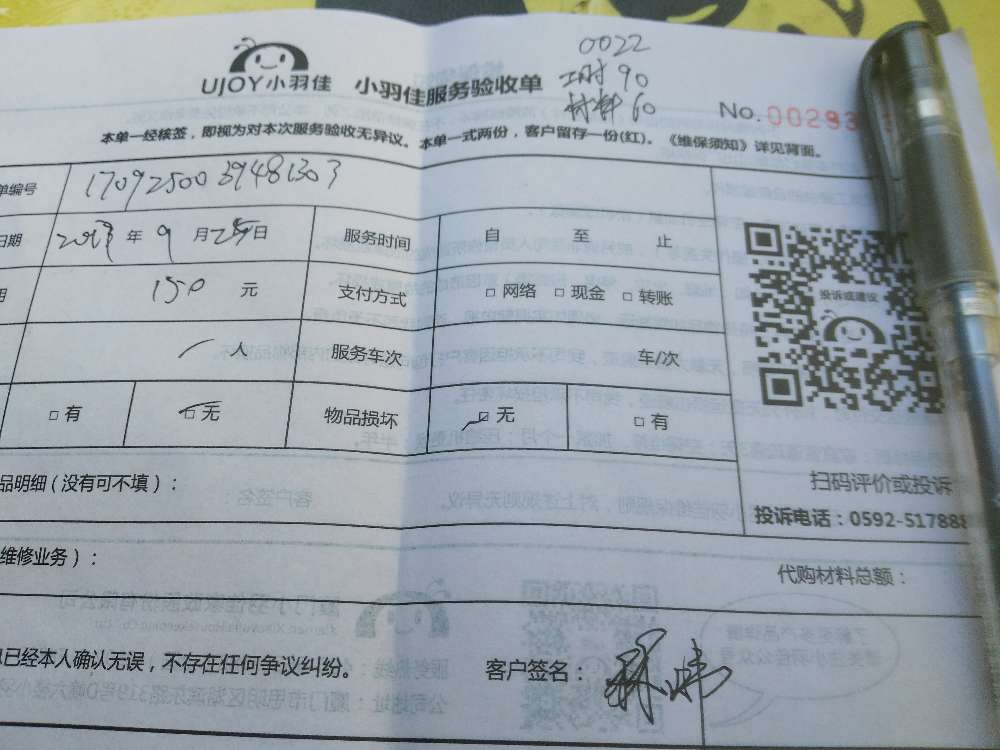 0022
UJOY小羽佳 小羽佳服务验收单 工时 90
材料 60
No. 00293
本单一经核签，即视为对本次服务验收无异议。本单一式两份，客户留存一份(红)。《维保须知》详见背面。
单编号 17092500394481303
日期 年 9 月 25 日 服务时间 自 至 止
150 元 支付方式 □ 网络 □ 现金 □ 转账
投诉或建议
人 服务车次 车/次
□ 有 □ 无 物品损坏 □ 无 □ 有
品明细（没有可不填）：
扫码评价或投诉
投诉电话：0592-517888
维修业务）：
代购材料总额：
已经本人确认无误，不存在任何争议纠纷。 客户签名：